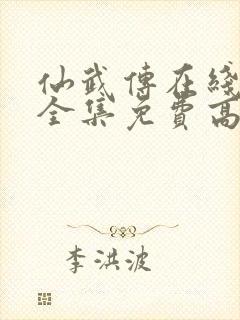 仙武傳在綫
全集免費高
李洪波